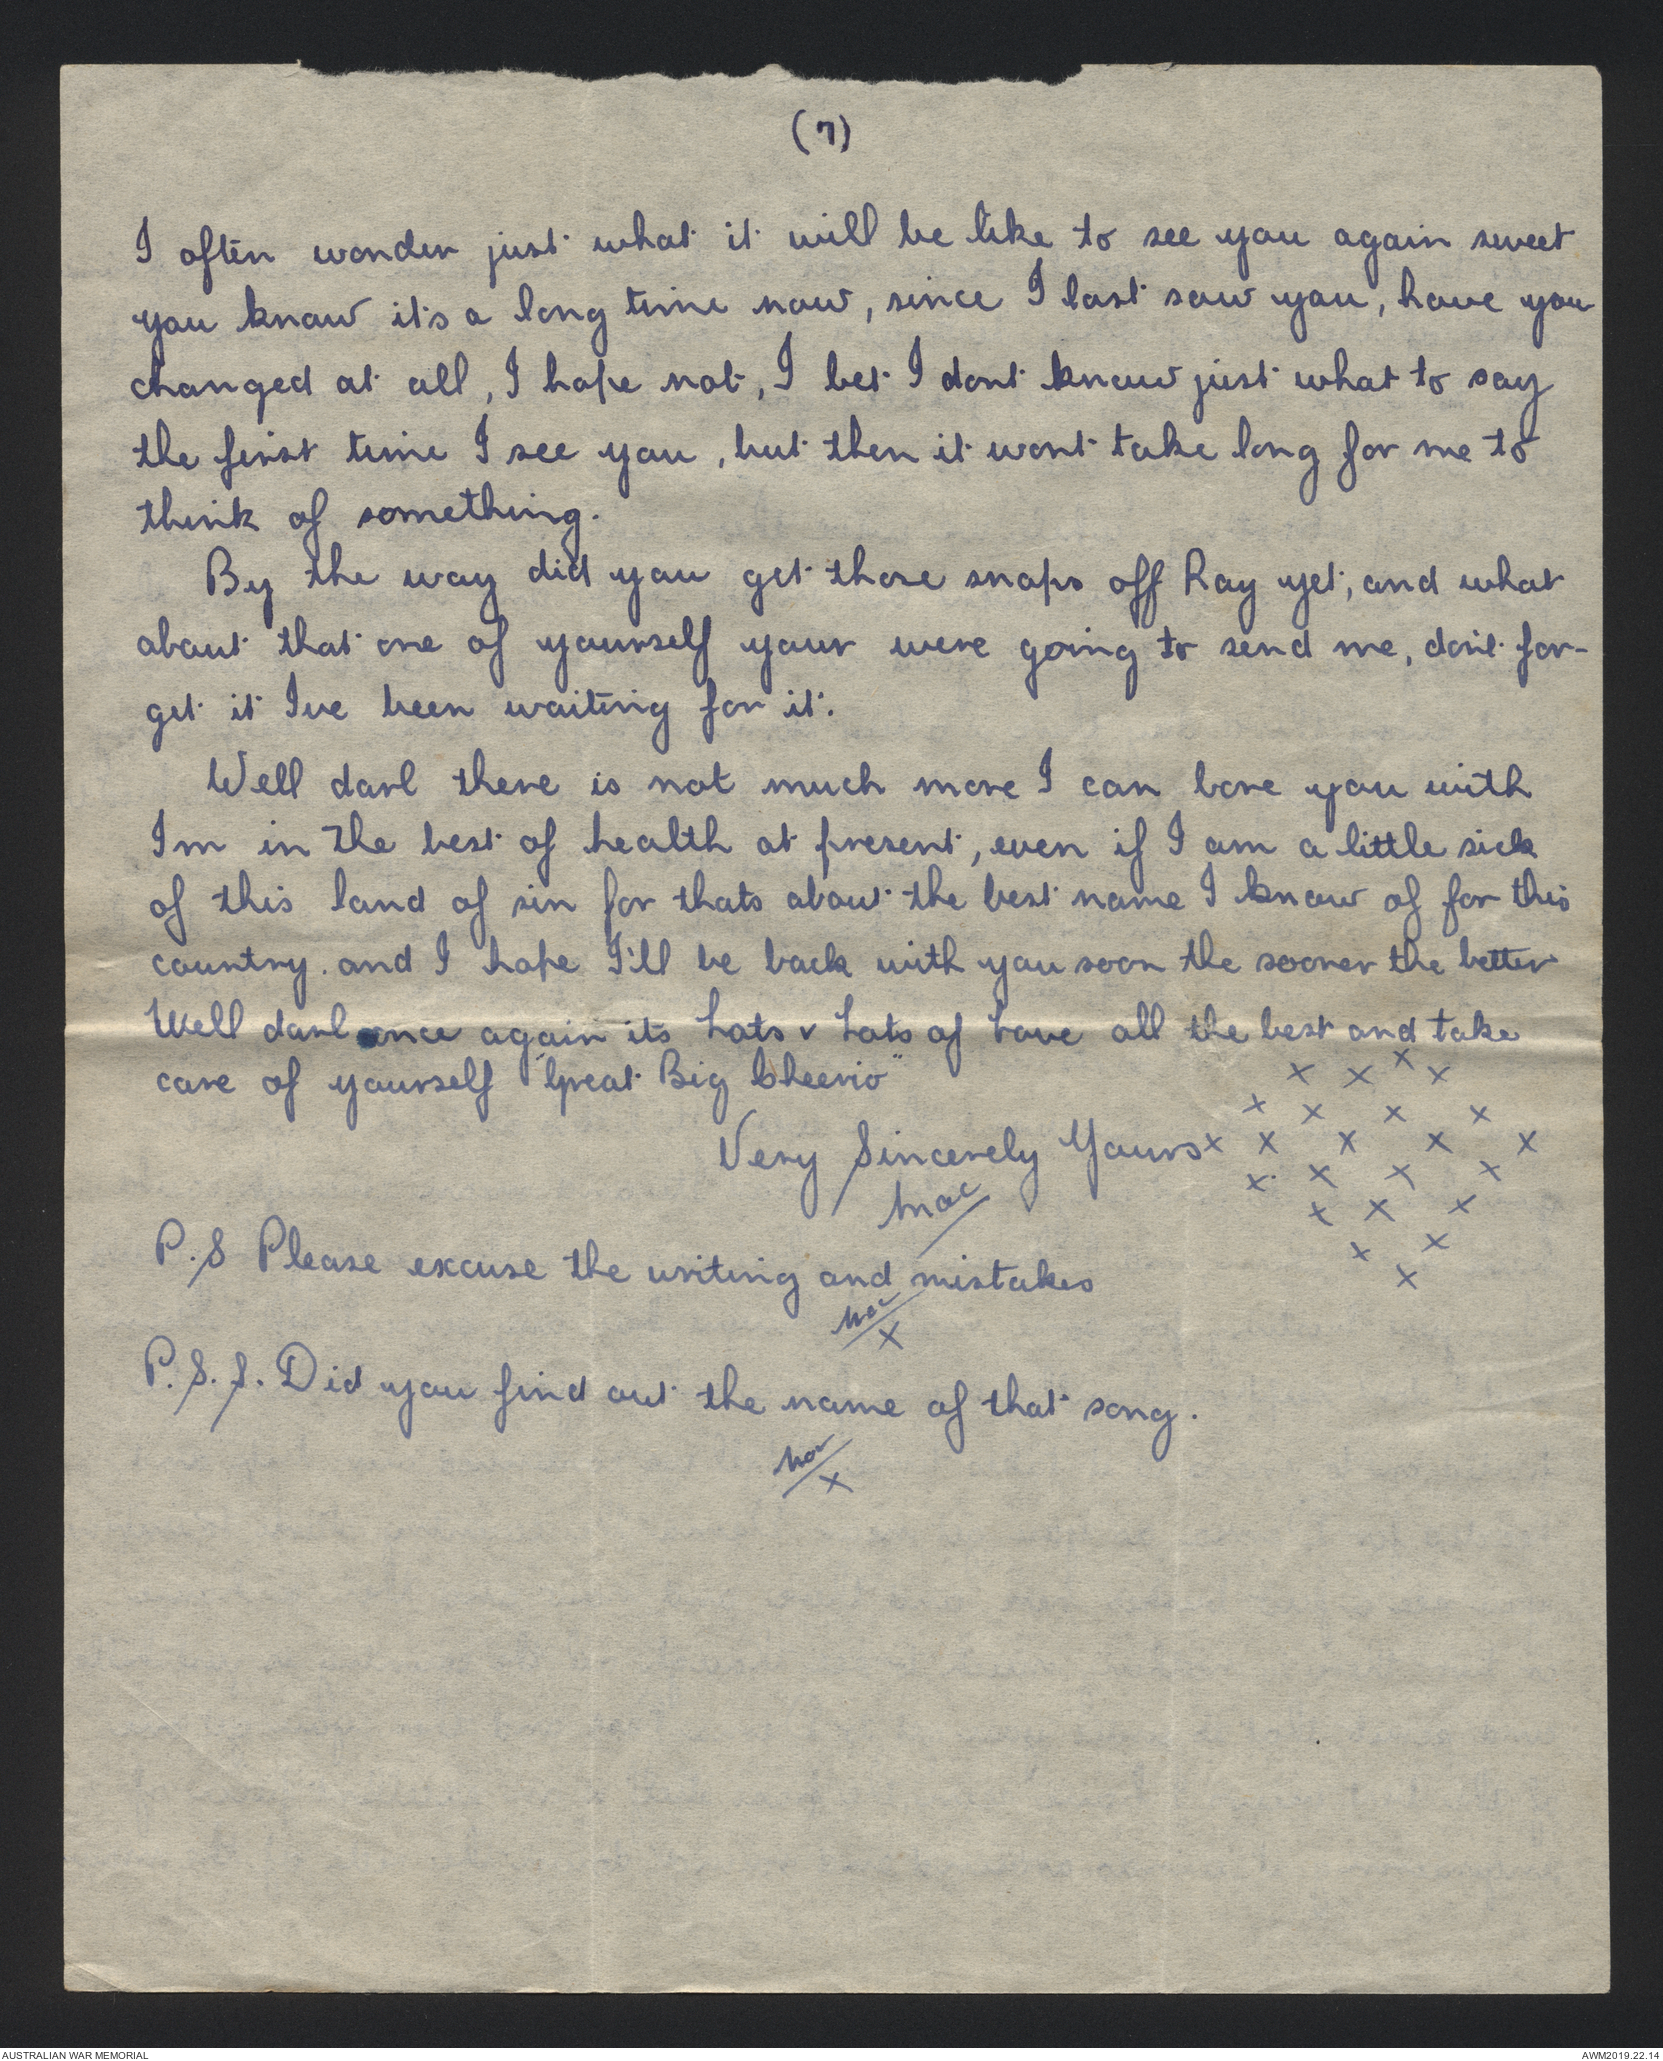 (7)
I often wonder just what it will be like to see you again sweet
you know it's a long time now, since I last saw you, have you
changed at all, I hope not, I bet I dont know just what to say
the first time I see you, but then it wont take long for me to
think of something.
By the way did you get those snaps off Ray yet, and what
about that one of yourself your were going to send me, don't for-
get it I've been waiting for it.
Well darl there is not much more I can bore you with
I'm in the best of health at present, even if I am a little sick
of this land of sin for thats about the best name I know of for this
country. and I hope I'll be back with you soon the sooner the better
Well darl once again its Lots & Lots of Love all the best and take
care of yourself "Great Big Cheerio"
x x x x
x x x x
Very Sincerely Yours x x x x x
x x x x
Mac
x x x
P.S Please excuse the writing and mistakes
x x
x
Mac
x
P.S.S. Did you find out the name of that song.
Mac
x
AUSTRALIAN WAR MEMORIAL
AWM2019.22.14